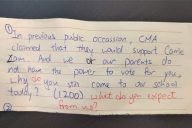 ① In previous public occasion, CMA
claimed that they would support Carrie
Lam. And we or our parents do
not have the power to vote for you,
why do you still come to our school
today? (1200) what do you expect
from us?